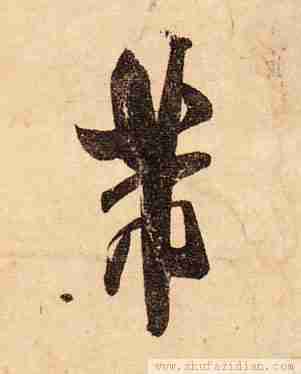 芾
www.shufazidian.com